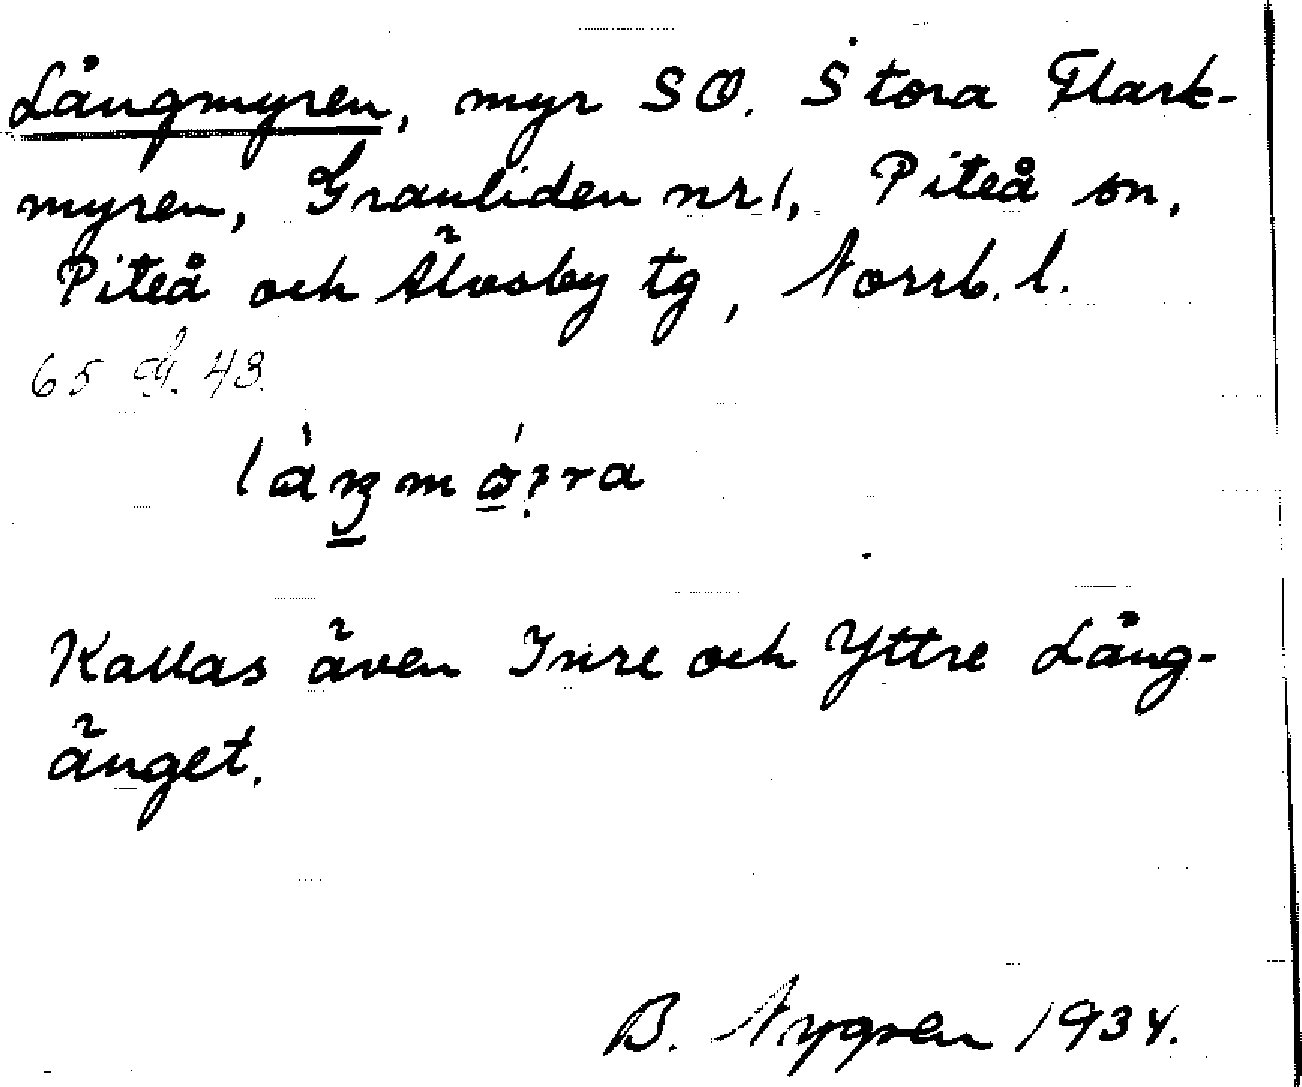 Långmyren, myr SO. Stora Flark-
myren, Granliden nr 1, Piteå sn,
Piteå och Älvsby tg, Norrb. l.
65 43.
Kallas även Inre och Yttre Lång-
änget.
B. Nygren 1934.